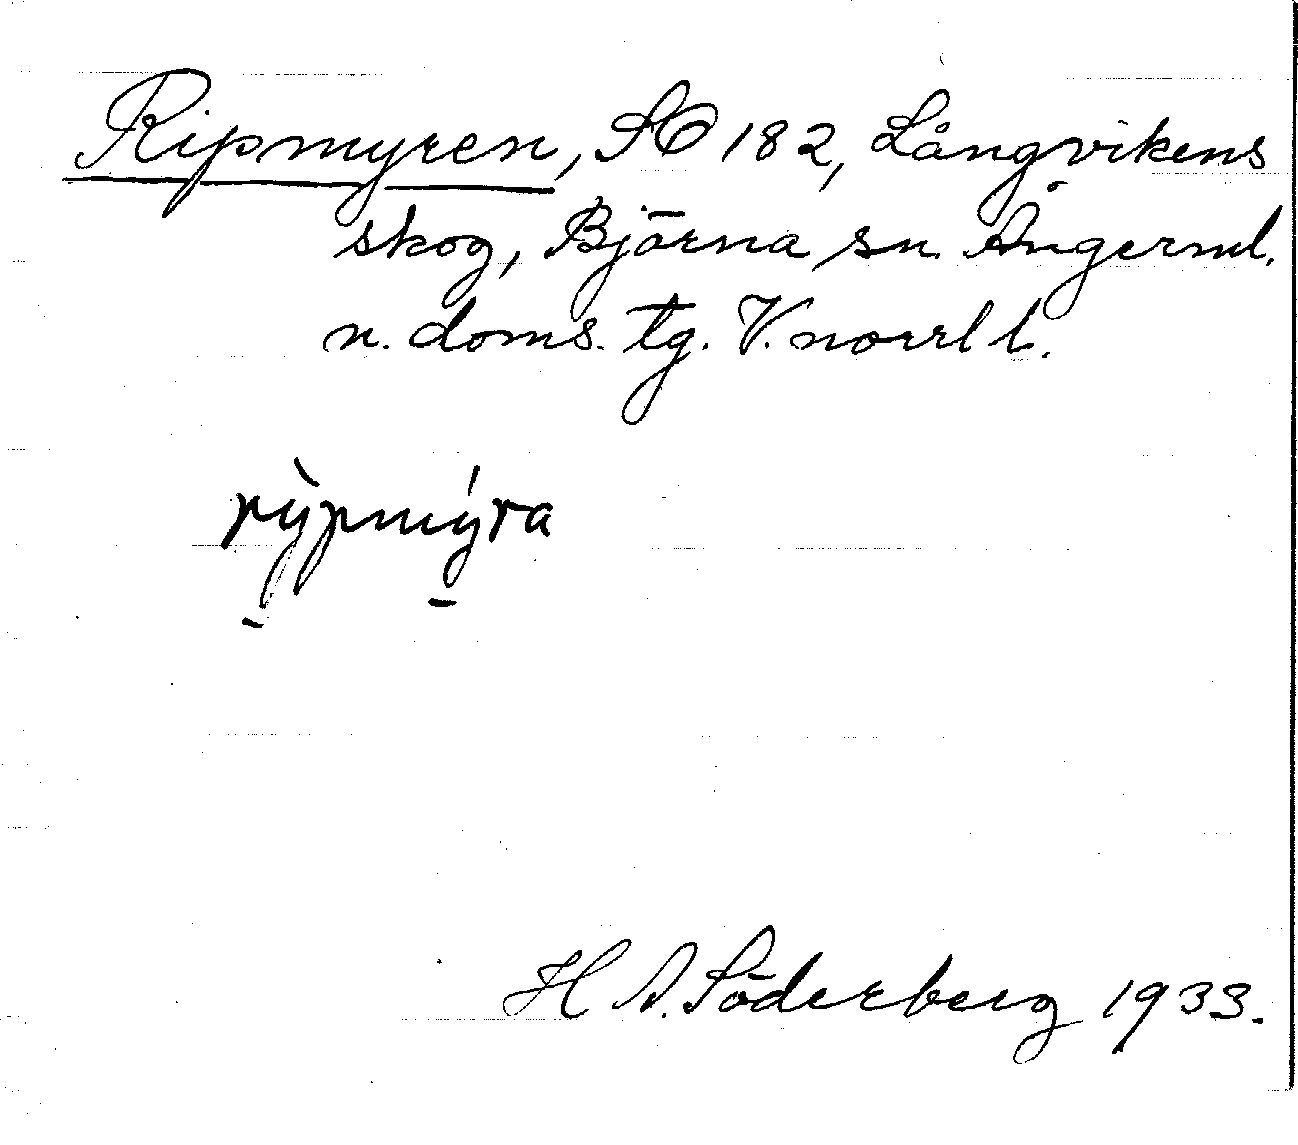 Ripmyren, SO 182, Långvikens
skog, Björna sn. Ångerml.
n. doms. tg. V. norrl l.
rỳpmýra
H A. Söderberg 1933.